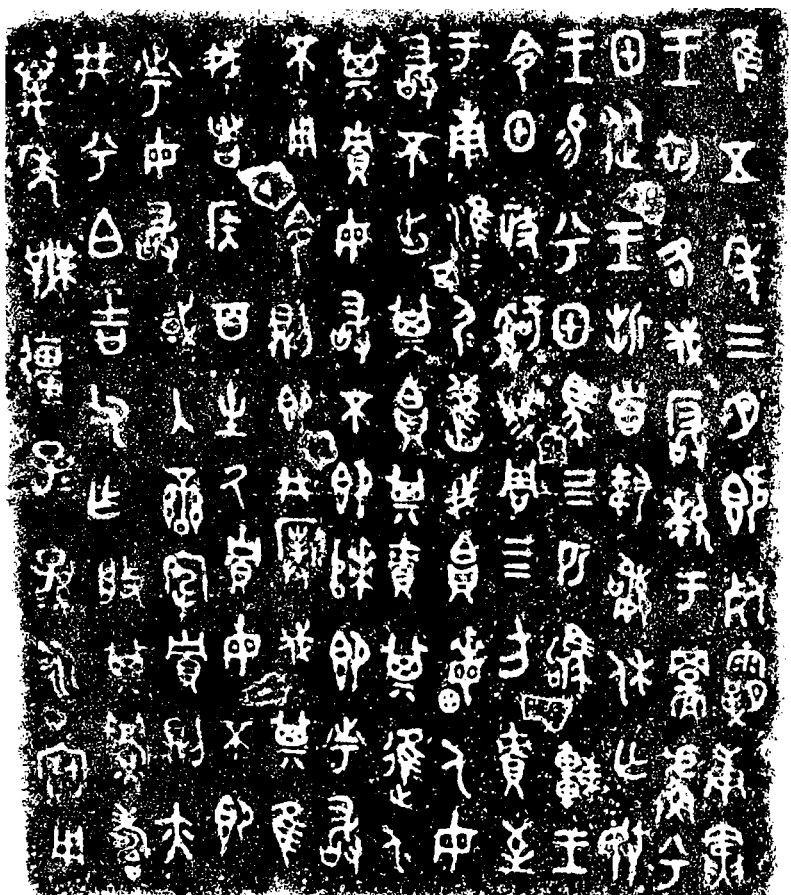 隹五年三月既死霸庚寅
王初各伐玁狁于䖒兮
甲從王折首執訊休亡敃
王易兮甲馬四匹駒車王
令甲政𤔲成周四方責至
于南淮夷淮夷舊我帛畮人毋
敢不出其帛其責其進人
其貯毋敢不即次即市敢
不用令則即井撲伐其隹
我者侯百生氒貯毋不即
市毋敢或入蠻宄貯則亦
井兮白吉父乍般其眉壽
萬年無疆子子孫孫永寶用